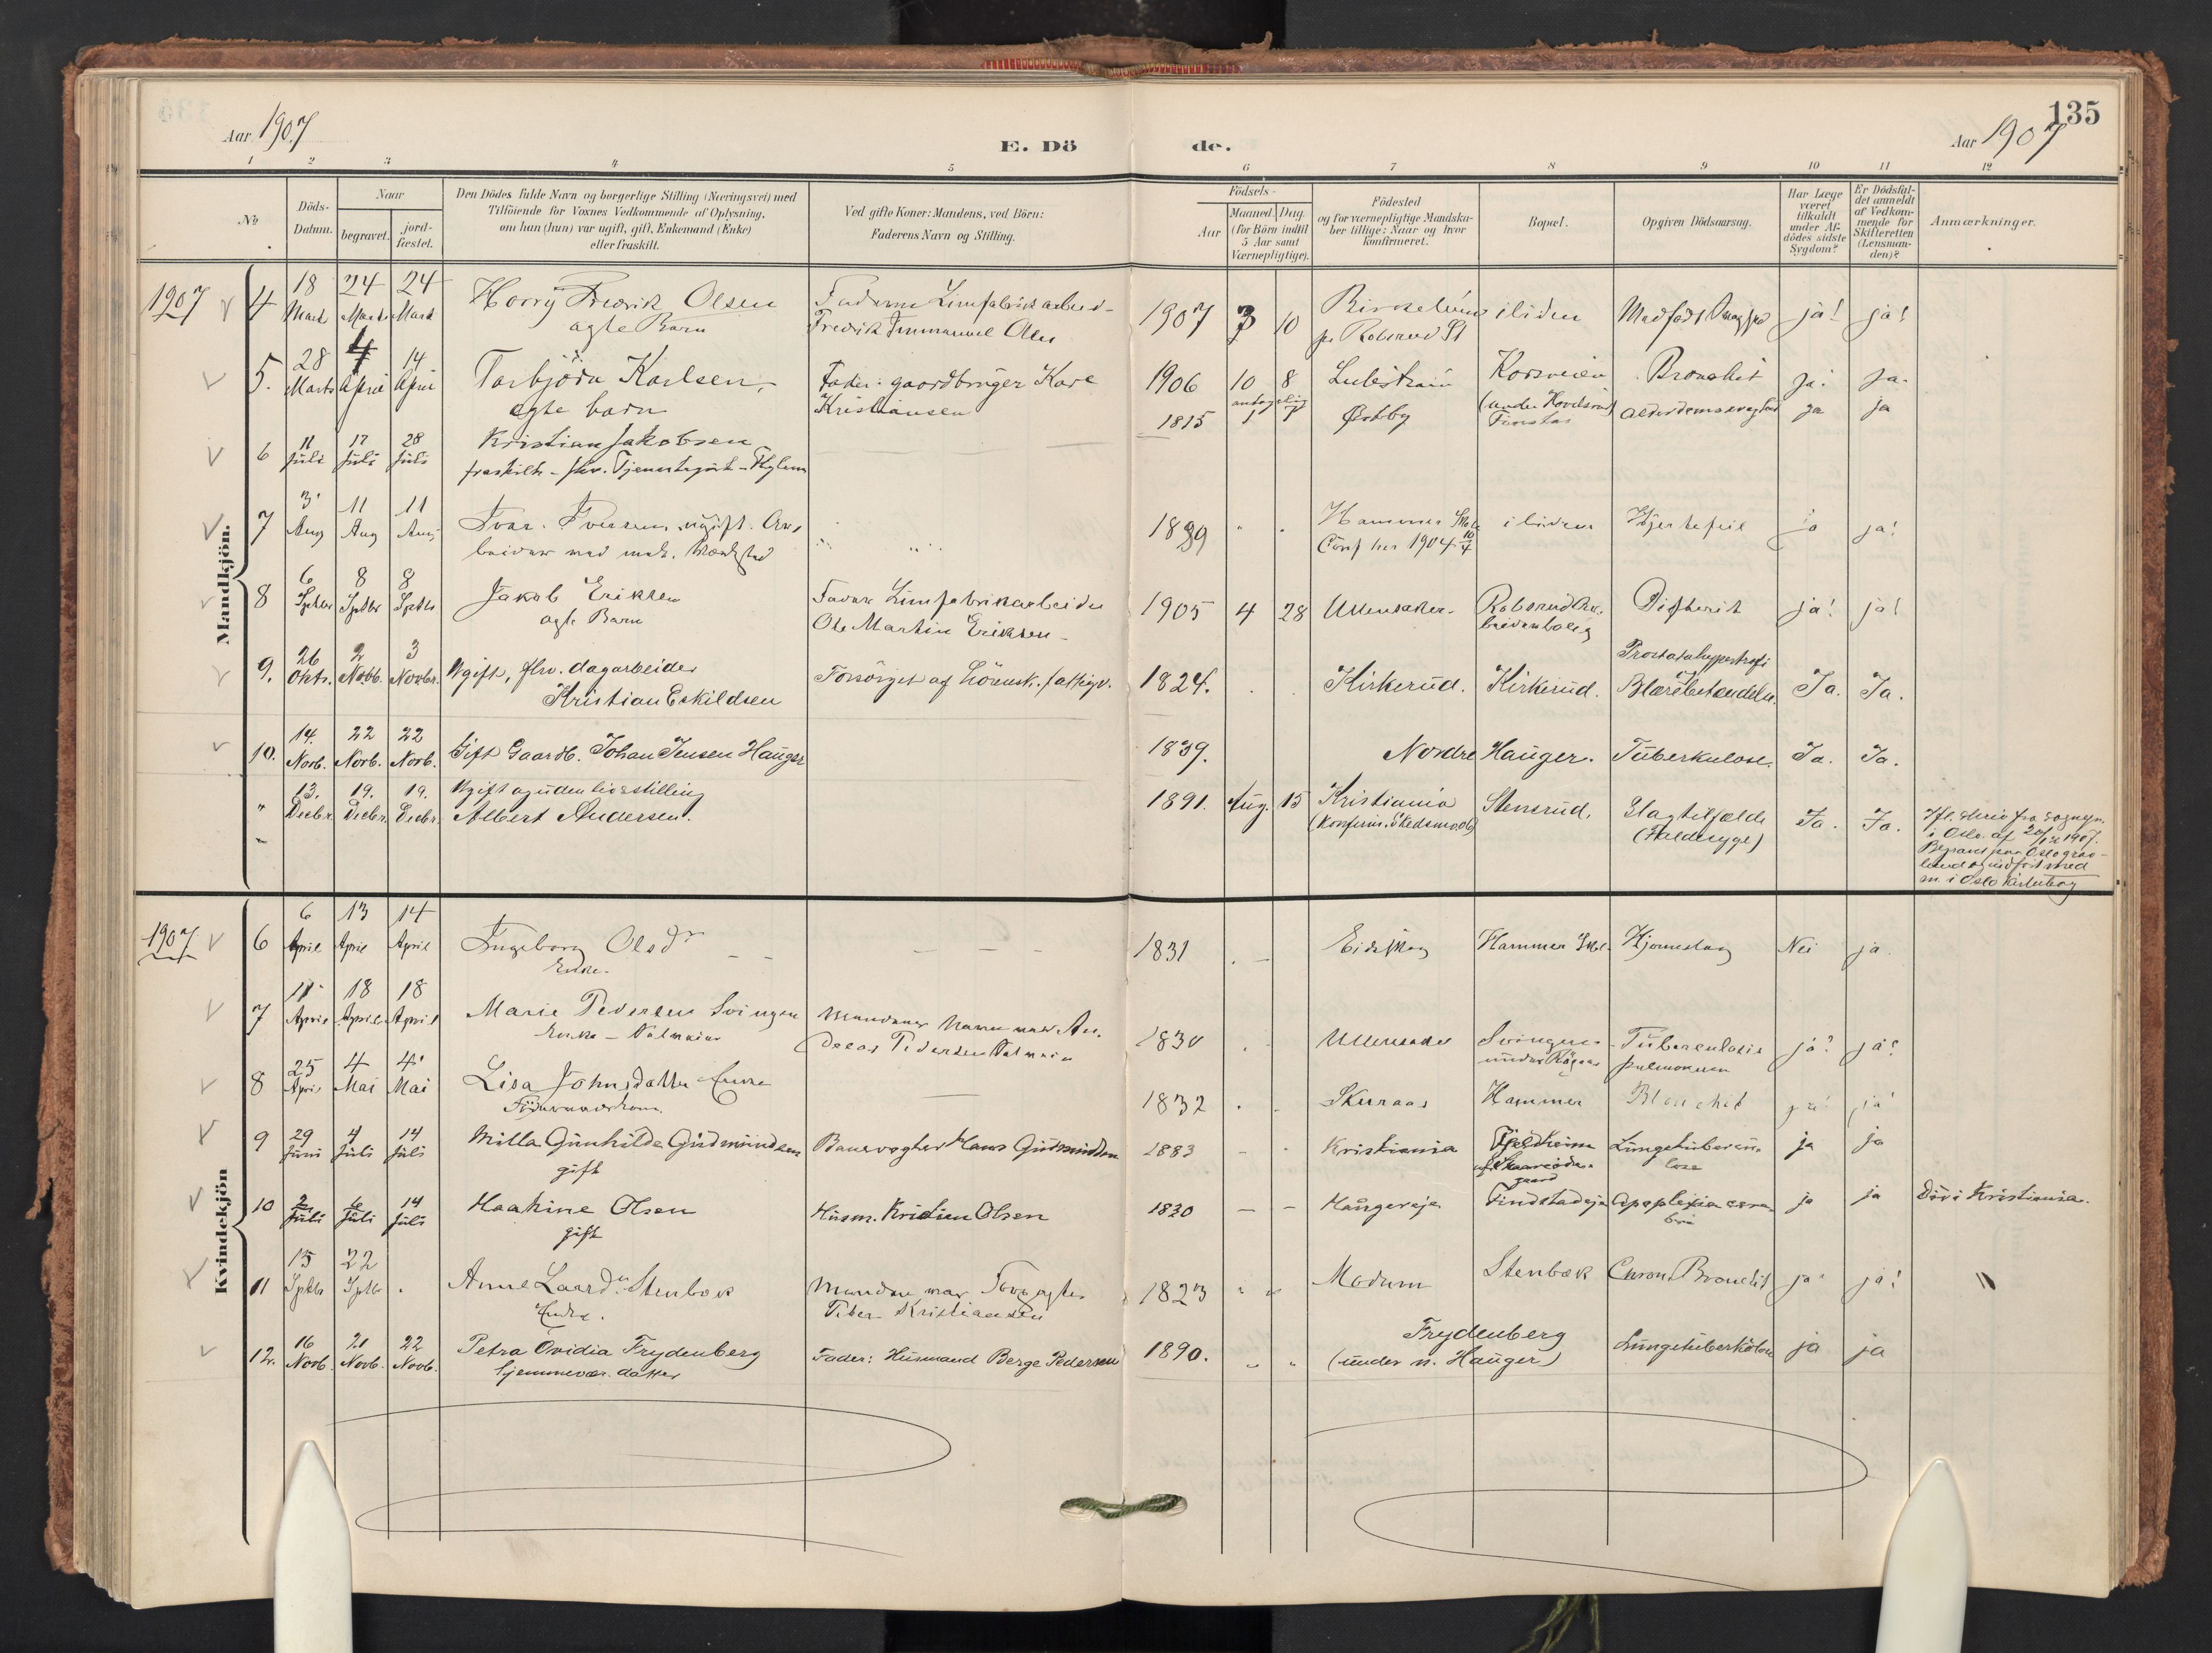 Aar 1907
E. Dö
de.
Aar 1907
135
1 2 3 4 5 6 7 8 9 10 11 12
No
Döds-
Datum.
Naar
begravet.
jord-
fæstet.
Den Dödes fulde Navn og borgerlige Stilling (Næringsvei) med
Tilföiende for Voxnes Vedkommende af Oplysning,
om han (hun) var ugift, gift, Enkemand (Enke)
eller fraskilt.
Ved gifte Koner: Mandens, ved Börn:
Faderens Navn og Stilling.
Födsels-
Aar
Maaned. Dag.
(for Börn indtil
5 Aar samt
Værnepligtige).
Födested
og for værnepligtige Mandska-
ber tillige: Naar og hvor
konfirmeret.
Bopæl.
Opgiven Dödsaarsag.
Har Læge
været
tilkaldt
under Af-
dödes sidste
Sygdom?
Er Dödsfal-
det anmeldt
af Vedkom-
mende for
Skifteretten
(Lensman-
den)?
Anmærkninger.
Mandkjön.
1907 4 18 Marts 24 Marts 24 Marts Harry Fredrik Olsen
ægte Barn
Faderen Limfabrikarbeid-
Fredrik Immanuel Olsen
1907 3 10 ja! ja!
5. 28 Marts 4 April 14 April Torbjörn Karlsen,
ægte barn
Fader: gaardbruger Karl
Kristiansen
1906 10 8 Korsveien Bronchit ja! ja.
6 11 Juli 17 Juli 28 Juli Kristian Jakobsen
fraskilt - fhv. Tjenestegut
1815 Østby ja ja
7 3 Aug 11 Aug 11 Aug Ivar Iversen ugift. Ar-
beider ved mek. Værksted
1889 Hammer
Conf her 1904 Hjertefeil ja ja!
8 6 Septbr 8 Septbr 8 Septbr Jakob Eriksen
ægte Barn
Fader Limfabrikarbeider
Ole Martin Eriksen
1905 4 28 Ullensaker Robsrud Ar-
beiderbolig
Difterit ja! ja!
9. 26 Oktr. 2 Novb. 3 Novbr. Ugift, fhv. dagarbeider
Kristian Eskildsen
Forsörget af Lörensk. fattigv.
1824. Kirkerud. Kirkerud. Prostatahypertrofi
Blærebetændelse. Ja. Ja.
10. 14. Novb. 22 Novb. 22 Novb. Gift Gaardb. Johan Jensen Hauger
1839. Nordre Hauger. Tuberkulose. Ja. Ja.
" 13. Decbr. 19. Decbr. 19. Decbr. Ugift og uden livsstilling
Albert Andersen.
1891. Aug. 15 Kristiania
(Konfirm. i Skedsmo)
Stensrud. Slagtilfælde
(Faldesyge) Ja. Ja.
i Oslo af 20/12 1907.
i Oslo kirkebog
Kvindekjön
1907 6 6 April 13 April 14 April Ingeborg Olsdr
Enke.
1831 Eidskog Hammer Hjerneslag Nei ja
7 11 April 18 April 18 April Marie Pedersen Svingen
Enke
Mandens Navn var An-
dreas Pedersen
Ullensaker Svingen
Tuberculosis
pulmonum ja! ja!
8 25 April 4 Mai 4 Mai Lisa Johnsdatter Enke
1832 Hammer Bronchit ja! ja!
9 29 Juni 4 Juli 14 Juli Milla Gunhilde Gudmundsen
gift
Banevogter Hans Gudmundsen
1883 Kristiania Fjeldheim
Lungetuberku-
lose ja ja
10 2 Juli 6 Juli 14 Juli Haakine Olsen
gift
Husm. Kristian Olsen
1830 Haugereje Finstadeje Apoplexia cere-
bri ja ja Död i Kristiania.
11 15 Septbr 22 Septbr Anne Laarsdr Stenbæk
Enke.
Manden var
Peder Kristiansen
1823 Modum Stenbæk Chron Bronchit ja ja!
12. 16 Novb. 21 Novb. 22 Novb. Petra Ovidia Frydenberg
hjemmevær. datter
Fader: Husmand Berge Pedersen
1890. Frydenberg
(under n. Hauger)
Lungetuberkulose ja ja